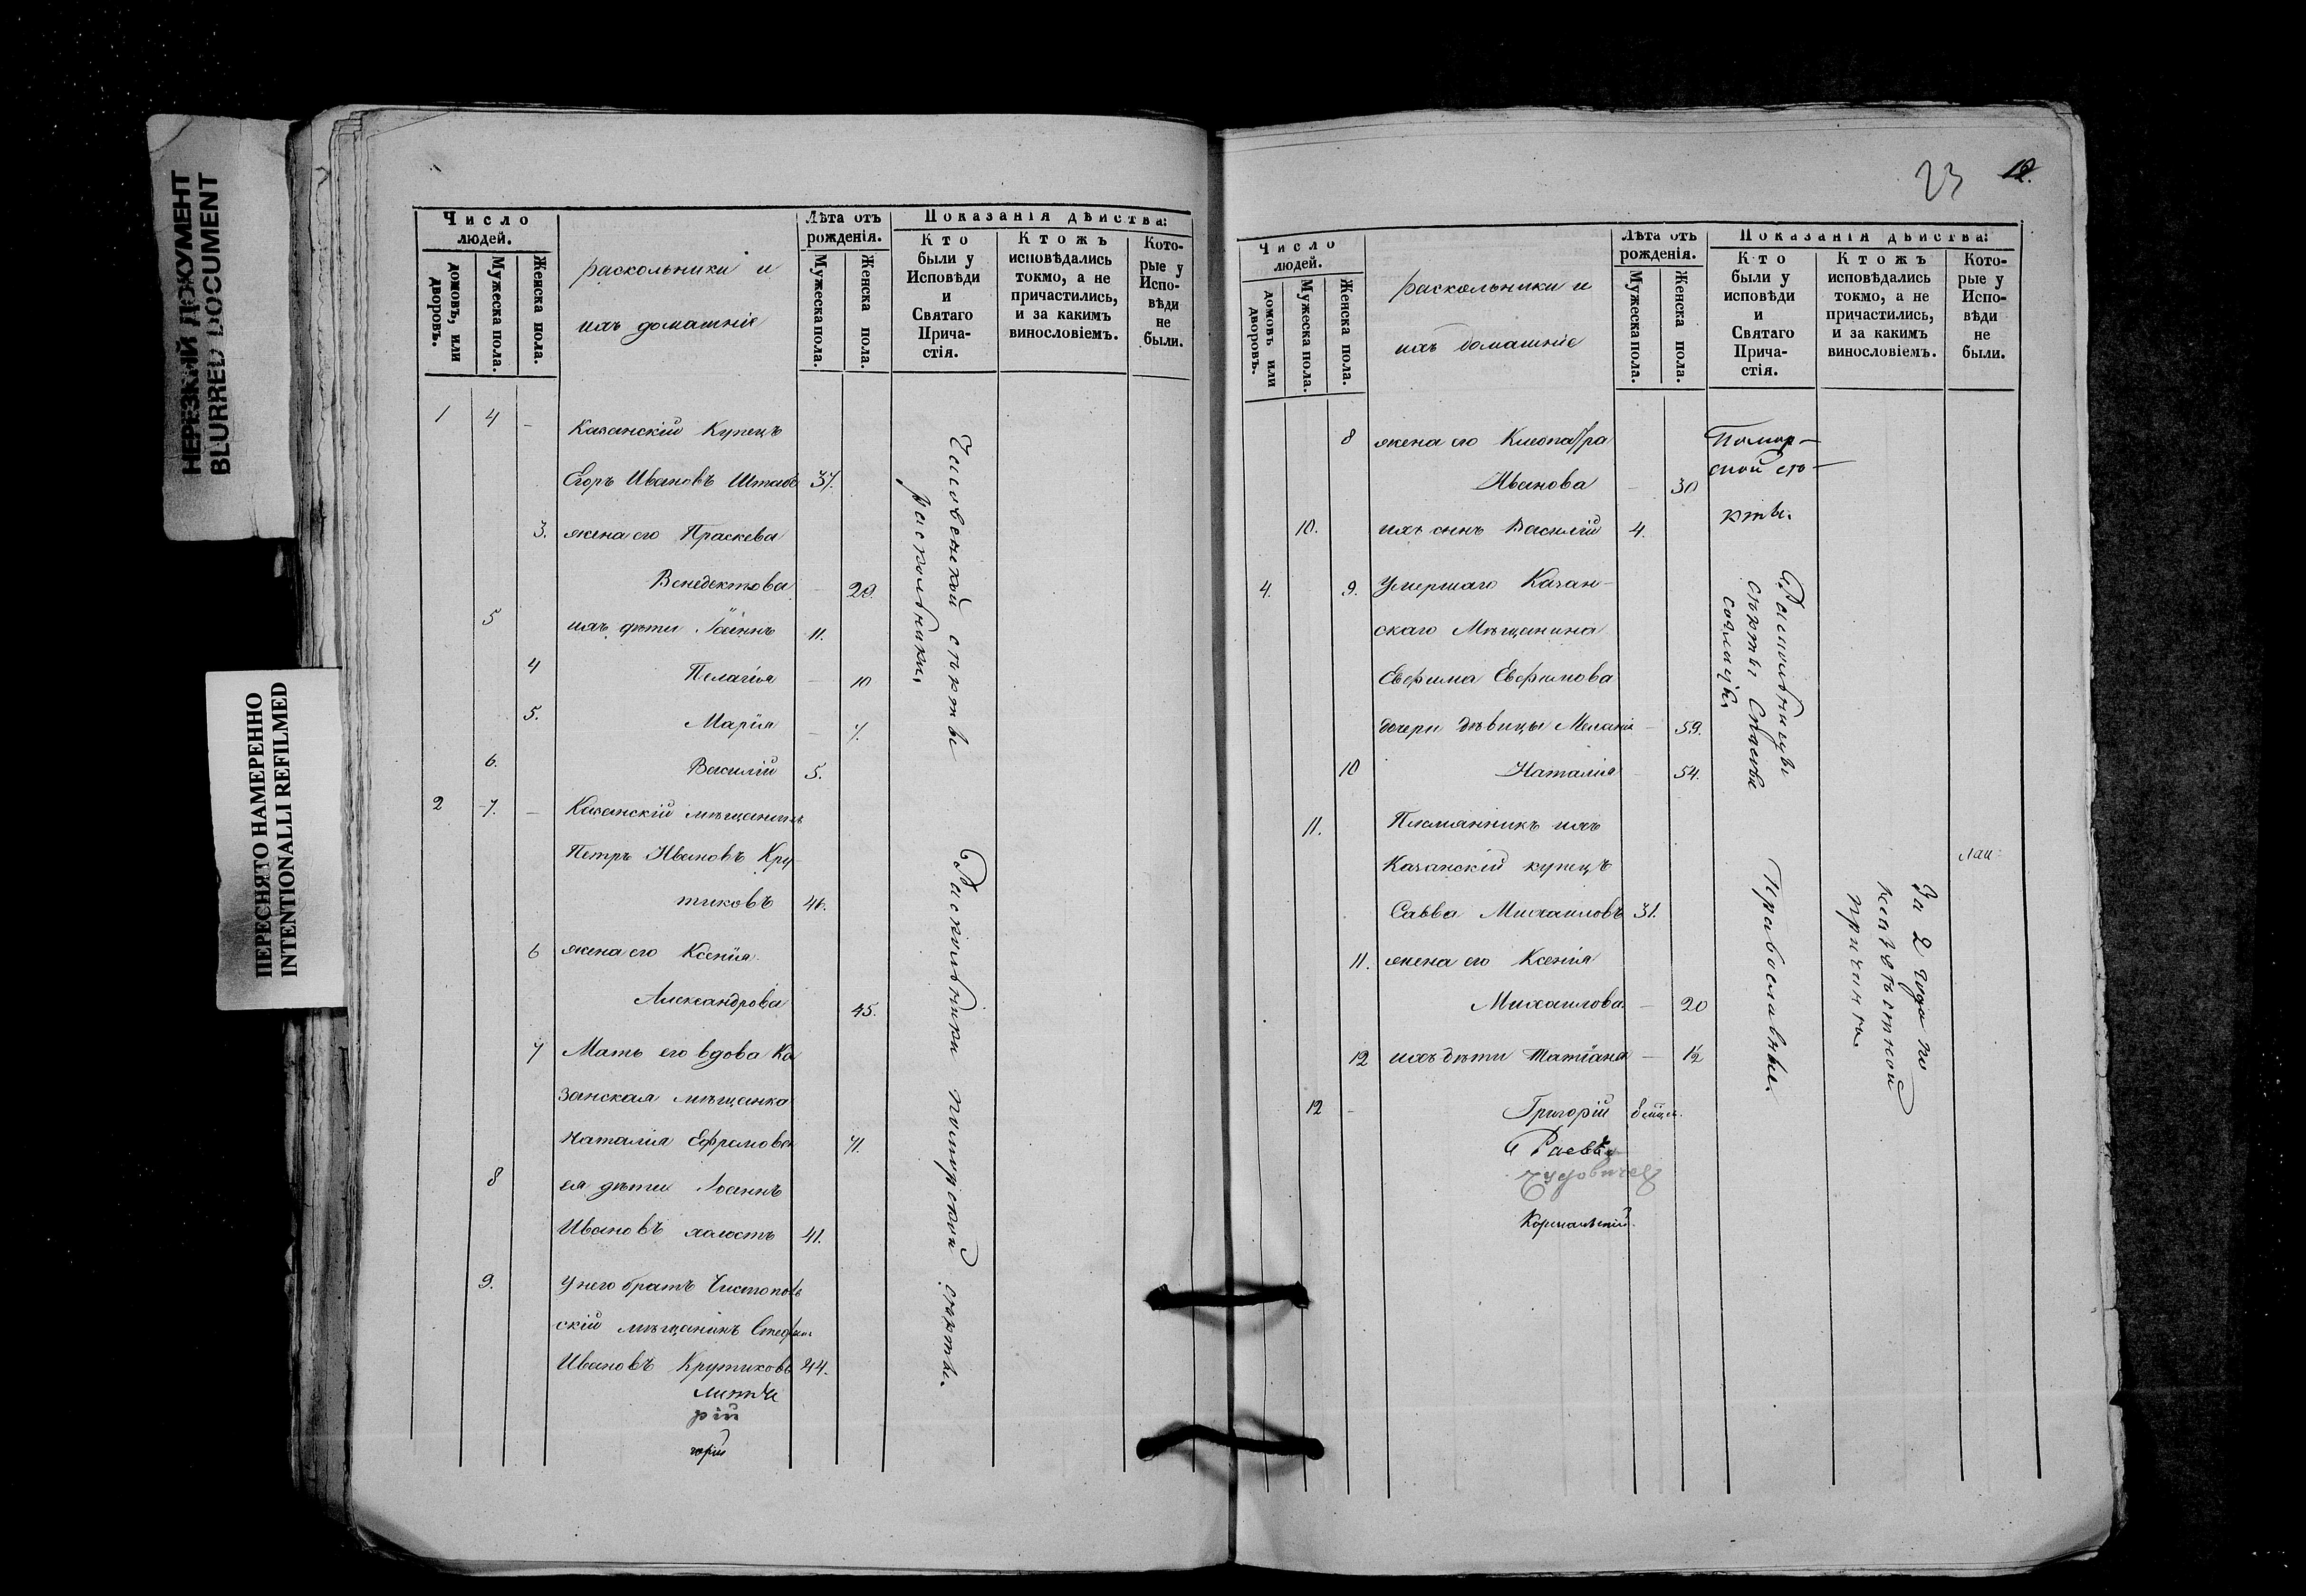 НЕРЕЗКИЙ ДОКУМЕНТ
BLURRED DOCUMENT
ПЕРЕСНЯТО НАМЕРЕННО
INTENTIONALLI REFILMED
Число людей.
домовъ, или дворовъ.
Мужеска пола.
Женска пола.
раскольники и
ихъ домашніе
Лѣта отъ рожденія.
Мужеска пола.
Женска пола.
Показанія дѣйства:
Кто были у Исповѣди и Святаго Прича-стія.
Ктожъ исповѣдались токмо, а не причастились, и за какимъ винословіемъ.
Кото-рые у Испо-вѣди не были.
1 4 - Казанскій Купецъ
Егоръ Ивановъ 37.
3. жена его Праскева
Венедектова - 29.
5 ихъ дѣти Іоаннъ 11.
4 Пелагія - 10
5. Марія - 7.
6. Василій 5.
2 7. - Казанскій мѣщанинъ
Петръ Ивановъ Кру-
тиковъ 46.
6 жена его Ксенія
Александрова 45.
7 Мать его вдова Ка
занская мѣщанка
Наталія Ефремова 71.
8 ея дѣти Іоаннъ
Ивановъ холостъ 41.
9. у него братъ Чистополь
скій мѣщанинъ Стефанъ
Ивановъ Крутиковъ 44.
рій
секты
раскольники.
Раскольники поморской секты.
23 12.
Число людей.
домовъ или дворовъ.
Мужеска пола.
Женска пола.
раскольники и
ихъ домашніе
Лѣта отъ рожденія.
Мужеска пола.
Женска пола.
Показанія дѣйства:
Кто были у исповѣди и Святаго Прича-стія.
Ктожъ исповѣдались токмо, а не причастились, и за какимъ винословіемъ.
Кото-рые у Испо-вѣди не были.
8 жена его Клеопатра
Иванова - 30
10. ихъ сынъ Василій 4.
4. 9. Умершаго Казан-
скаго Мѣщанина
Евфима Евфимова
дочери дѣвицы Меланія - 59.
10 Наталія - 54.
11. Племянникъ ихъ
Казанскій купецъ
Савва Михаиловъ 31.
11. жена его Ксенія
Михаилова - 20
12 ихъ дѣти Татіана - 1½
12 - Григорій
Помор-
ской се-
кты.
Раскольницы
секты Спасова
согласія.
Православные.
За 2 года по
неизвѣстной
причинѣ.